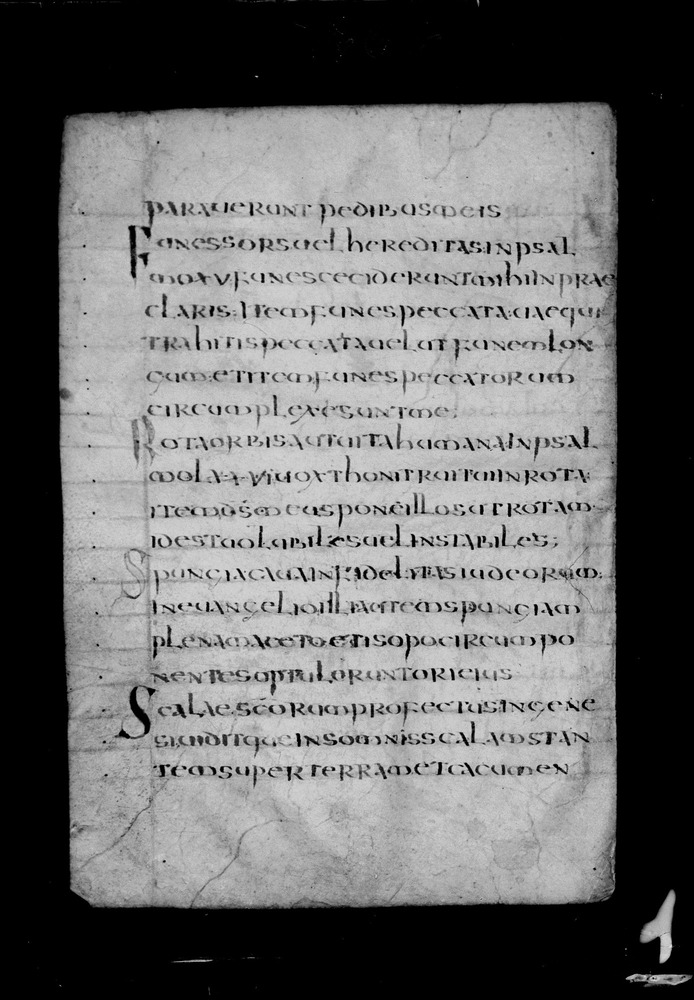 PARAUERUNT PEDIBUS MEIS
FUNES SORS UEL HEREDITAS IN PSAL
MO XV FUNES CECIDERUNT MIHI IN PRAE
CLARIS; ITEM FUNES PECCATA; UAE QUI
TRAHITIS PECCATA UELUT FUNEM LON
GUM; ET ITEM FUNES PECCATORUM
CIRCUMPLEXE SUNT ME;
ROTA ORBIS AUT UITA HUMANA IN PSAL
MO LXXVI UOX THONITRUI TUI IN ROTA
ITEM DS MEUS PONE ILLOS UT ROTAM
ID EST UOLUBILES UEL INSTABILES;
SPUNGIA CAUA INFIDELITAS IUDEORUM;
IN EUANGELIO ILLI AUTEM SPUNGIAM
PLENAM ACETO ET ISOPO CIRCUMPO
NENTES OPTULORUNT ORI EIUS
SCALAE SCORUM PROFECTUS IN GENE
SI UIDITQUE IN SOMNIS SCALAM STAN
TEM SUPER TERRAM ET CACUMEN
1